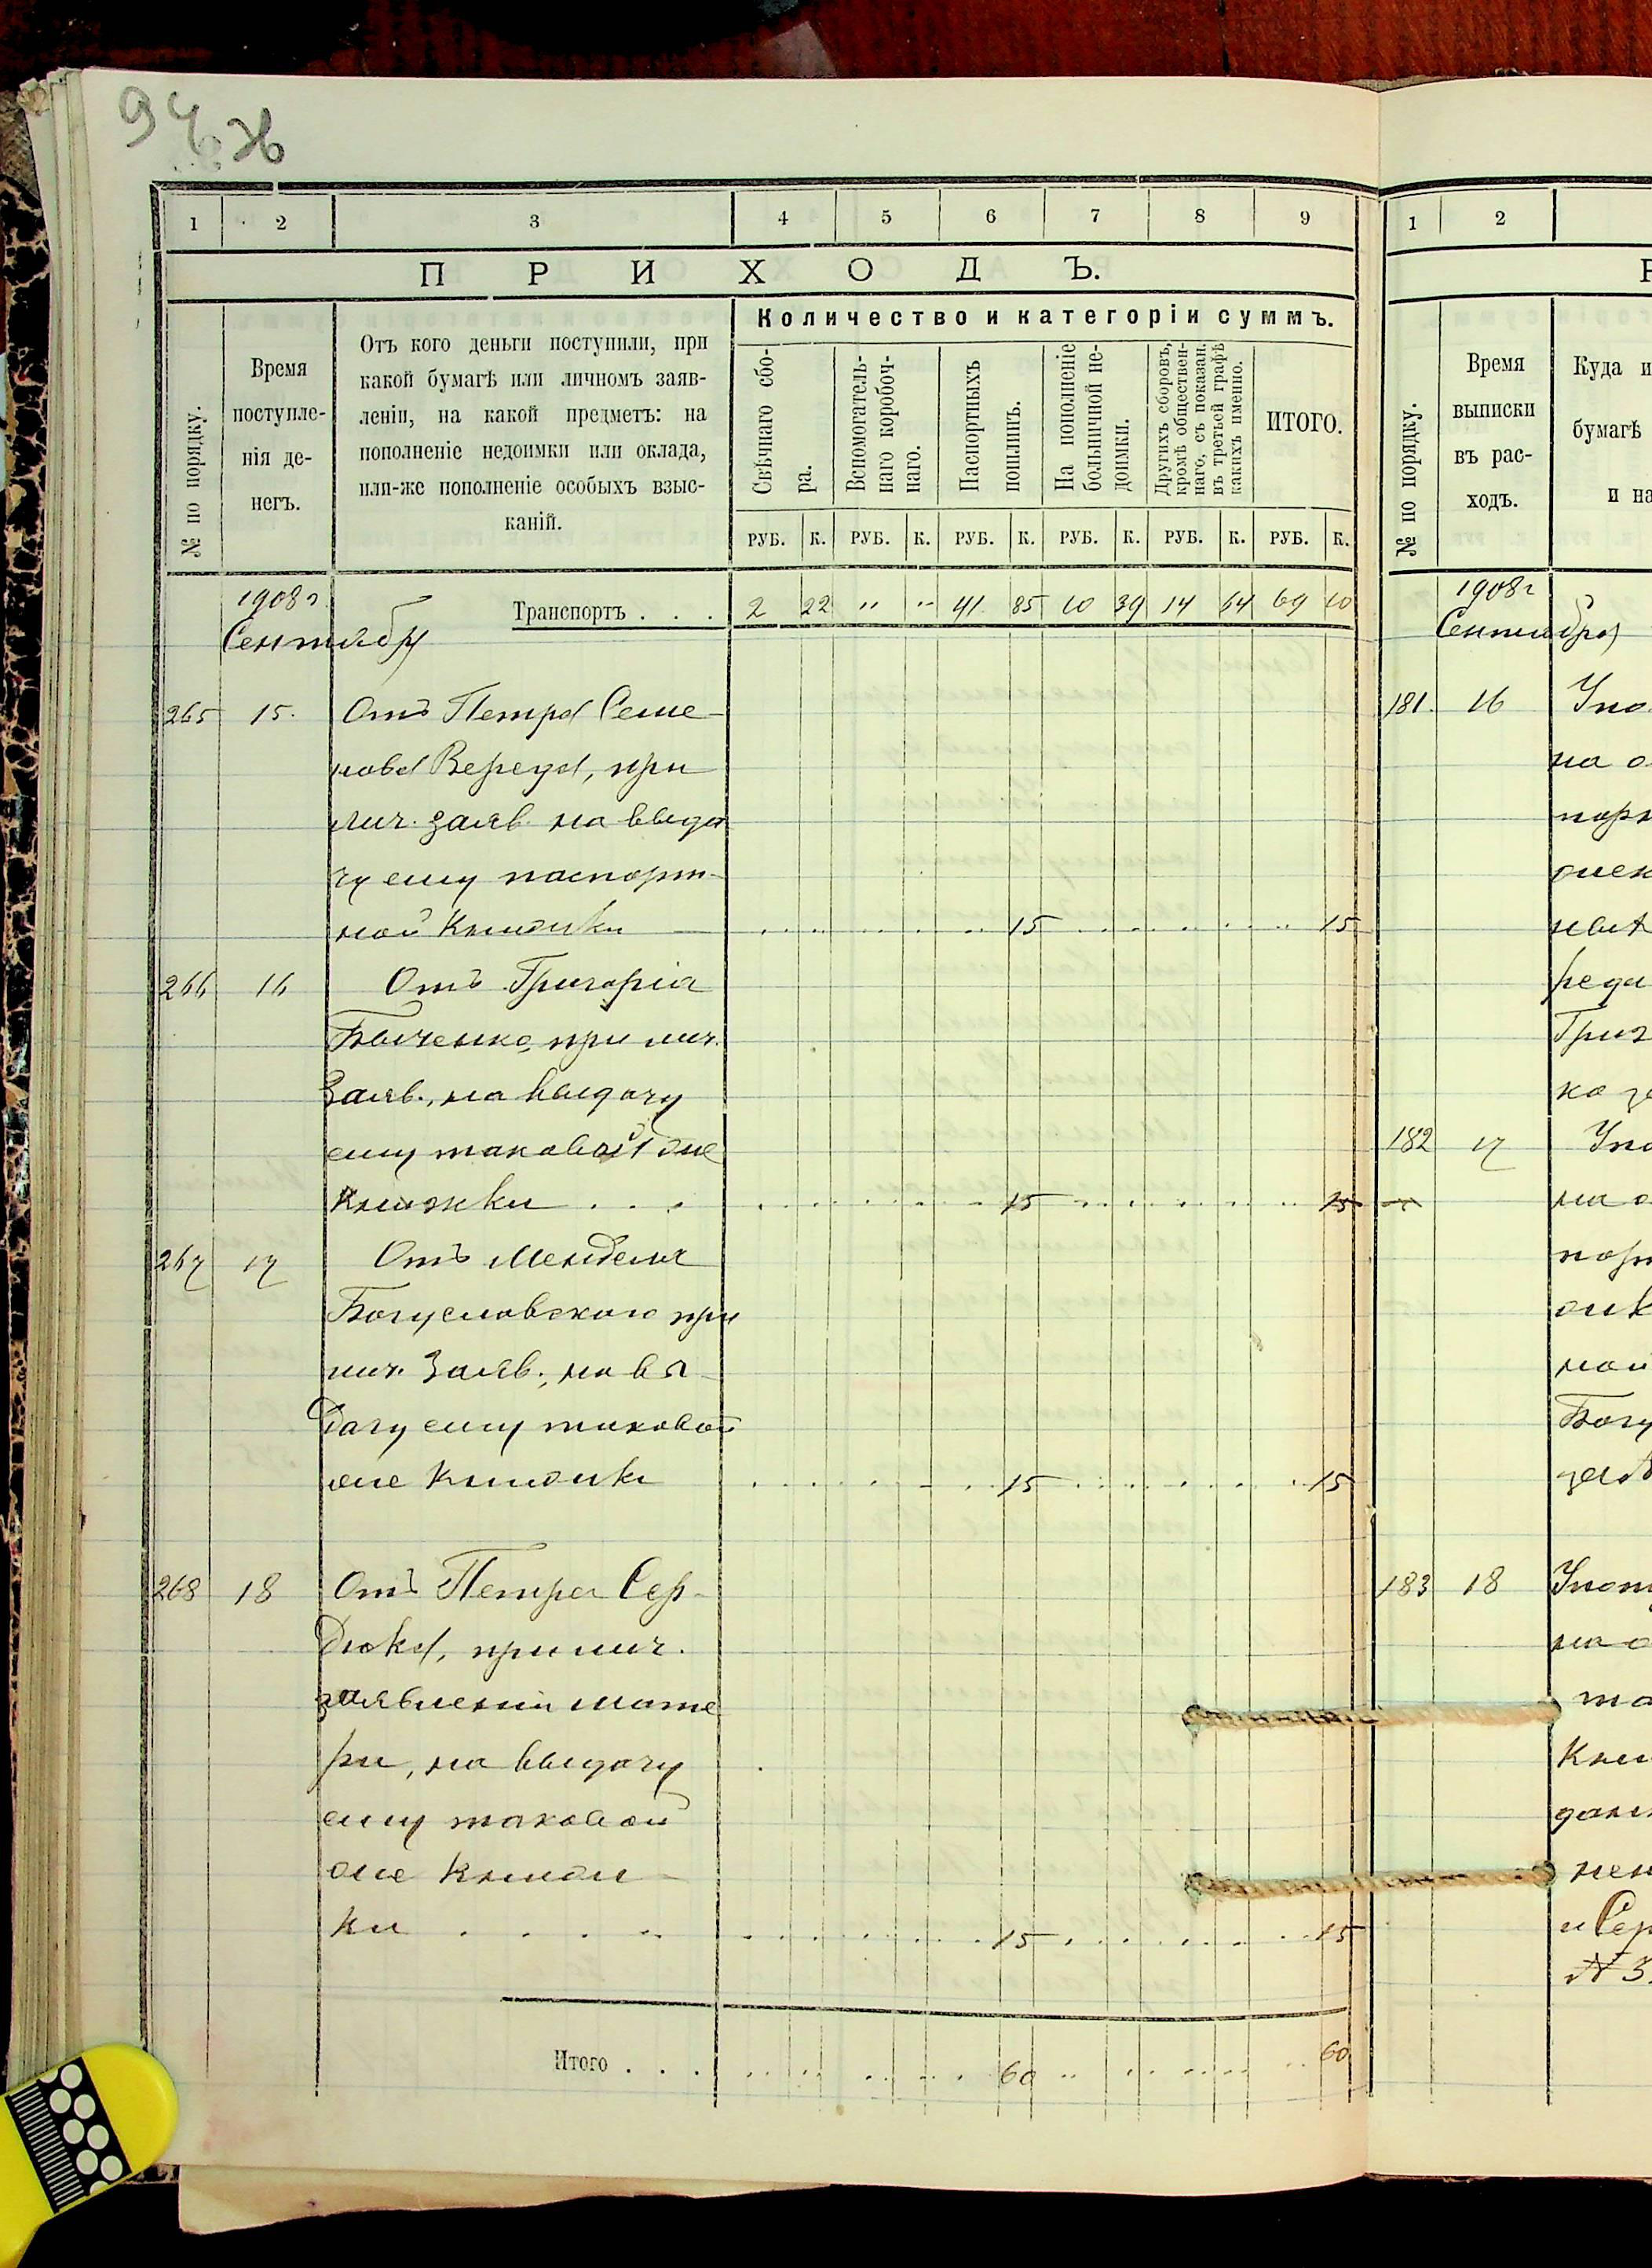 94
1 2 3 4 5 6 7 8 9
ПРИХОДЪ.
№ по порядку.
Время
поступле-
нія де-
негъ.
Отъ кого деньги поступили, при
какой бумагѣ или личномъ заяв-
леніи, на какой предметъ: на
пополненіе недоимки или оклада,
или-же пополненіе особыхъ взыс-
каній.
Количество и категоріи суммъ.
Свѣчнаго сбо-
ра.
Вспомогатель-
наго коробоч-
наго.
Паспортныхъ
пошлинъ.
На пополненіе
больничной не-
доимки.
Другихъ сборовъ,
кромѣ обществен-
наго, съ показан.
въ третьей графѣ
какихъ именно.
ИТОГО.
РУБ. К. РУБ. К. РУБ. К. РУБ. К. РУБ. К. РУБ. К.
1908 г.
Сентябр
Транспортъ . . . 2 22 " " 41 85 10 39 14 64 69 10
265 15. Отъ Петра Семе-
нова Вереда, при
лич. заяв. на выда
чу ему паспорт-
ной книжки 15 15
266 16 Отъ Григорія
при лич.
заяв., на выдачу
ему таковой же
книжки . . . 15 15
267 17 Отъ Менделя
Богуславского при
лич. заяв., на вы
дачу ему таковой
же книжки 15 15
268 18 Отъ Петра Сер-
дюка, при лич.
заявленіи мате
ри, на выдачу
ему таковой
же книж-
ки . . . . 15 15
Итого . . . 60 60
1 2
Р
№ по порядку.
Время
выписки
въ рас-
ходъ.
Куда и
бумагѣ
и на
1908 г
Сентября
181. 16
на о
реди
Григ
ко
182 17
на о
ной
Богу
183 18
на о
та
Кни
дан
и Сер
№ 3